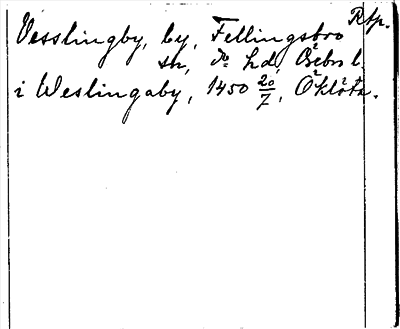 Vesslingby, by, Fellingsbro Rtp.
sn, do hd, Örebro l.
i Weslingaby, 1450 20/7, Öklösta.